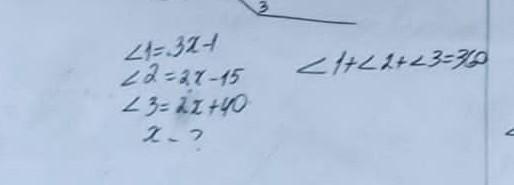 3
∠1=3x-1
∠2=2x-15
∠3=2x+40
x-?
∠1+∠2+∠3=360